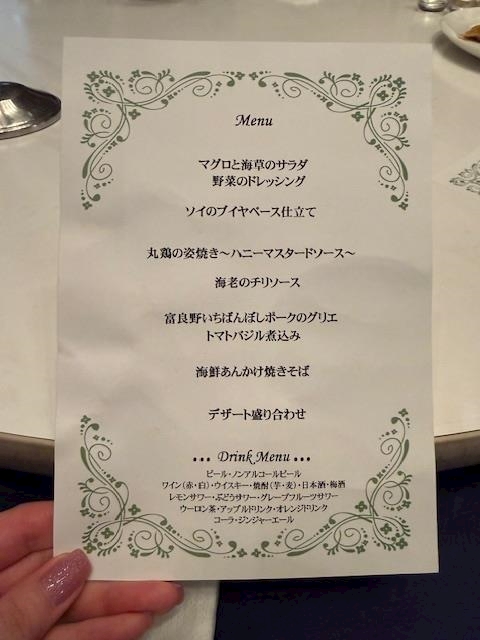 Menu
マグロと海草のサラダ
野菜のドレッシング
ソイのブイヤベース仕立て
丸鶏の姿焼き～ハニーマスタードソース～
海老のチリソース
富良野いちばんぼしポークのグリエ
トマトバジル煮込み
海鮮あんかけ焼きそば
デザート盛り合わせ
••• Drink Menu •••
ビール・ノンアルコールビール
ワイン（赤・白）・ウイスキー・焼酎（芋・麦）・日本酒・梅酒
レモンサワー・ぶどうサワー・グレープフルーツサワー
ウーロン茶・アップルドリンク・オレンジドリンク
コーラ・ジンジャーエール